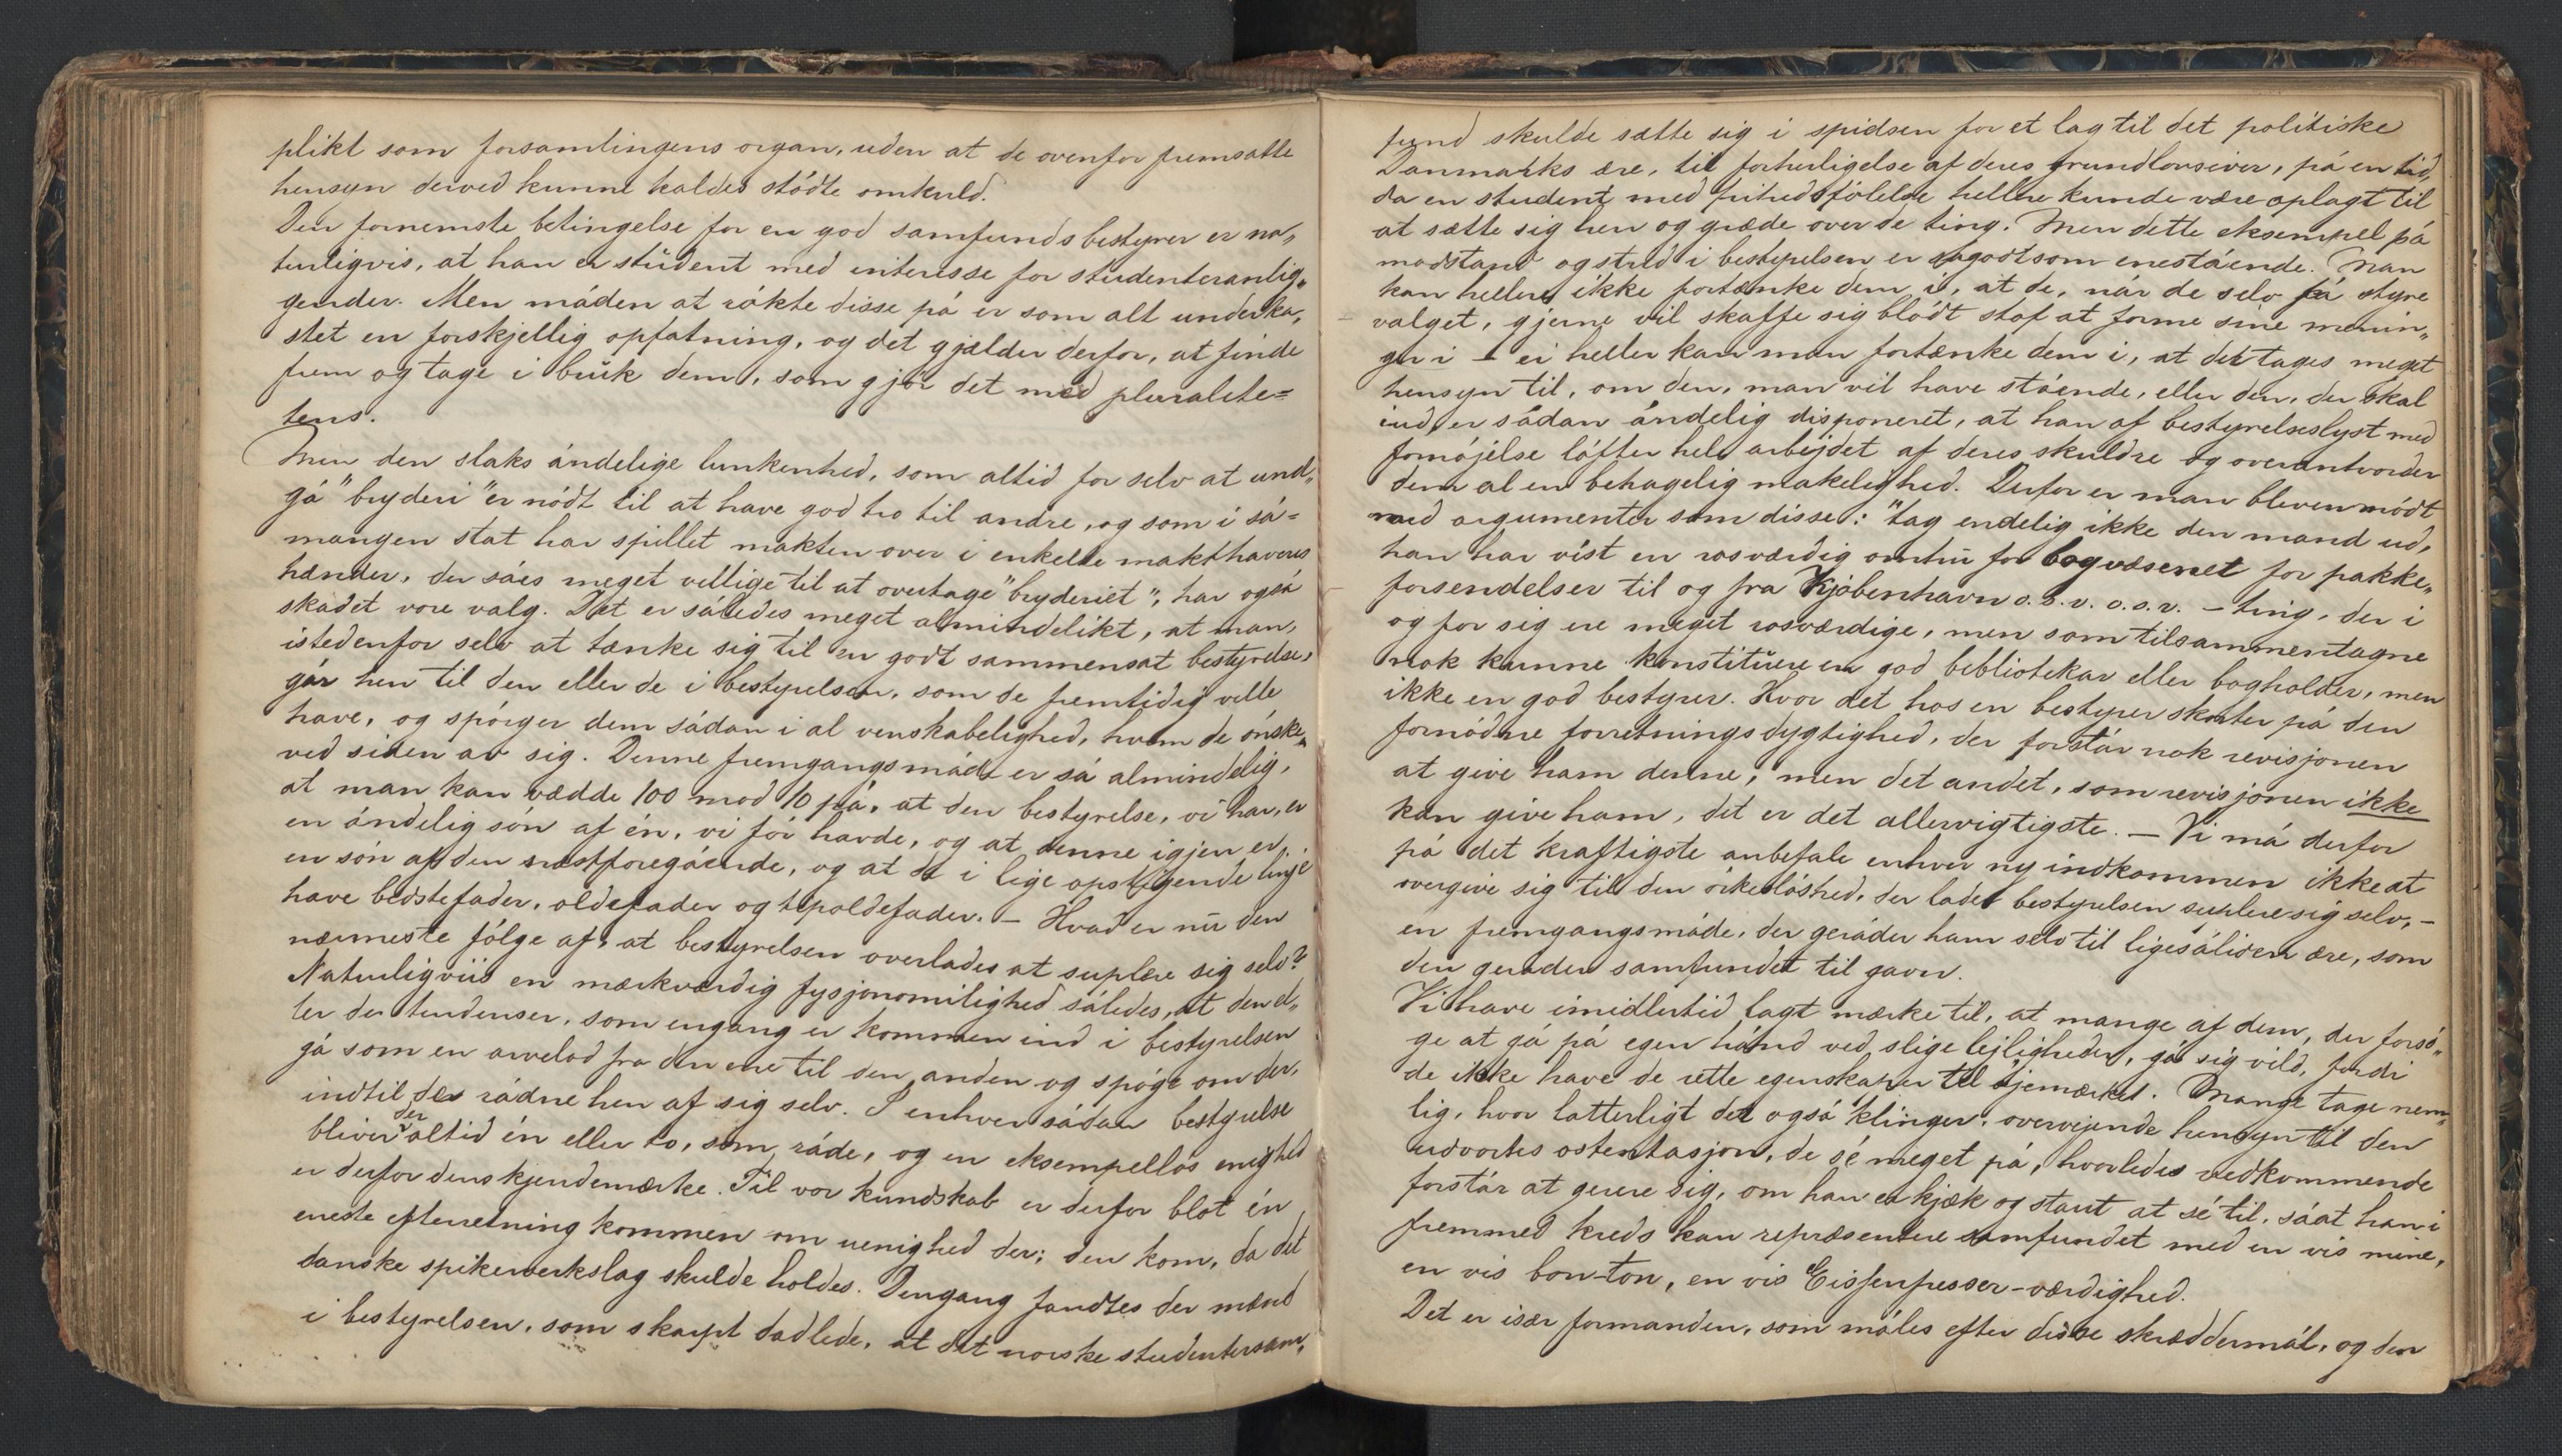 plikt som forsamlingens organ, uden at de ovenfor fremsatte
hensyn derved kunne kaldes stódte omkuld.
Den fornemste betingelse for en god samfundsbestyrer er na„
turligvis, at han er student med interesse for studenteranlig„
gender. Men máden at rókte disse pá er som alt underka„
stet en forskjellig opfatning, og det gjælder derfor, at finde
frem og tage i brúk dem, som gjór det med pluralite=
tens.
Men den slaks ándelige lunkenhed, som altid for selv at und„
gá "bryderi" er nódt til at have god tro til andre, og som i sá=
mangen stat har spillet makten over i enkelte makthaveres
hænder, der sáes meget villige til at overtage "bryderiet", har ogsá
skadet vore valg. Det er sáledes meget almindelikt, at man,
istedenfor selv at tænke sig til en godt sammensat bestyrelse,
gár hen til den eller de i bestyrelsen, som de fremtidig ville
have, og spórger dem sádan i al venskabelighed, hvem de ónske
ved siden av sig. Denne fremgangsmáde er sá almindelig,
at man kan vædde 100 mod 10 pá, at den bestyrelse, vi har, er
en ándelig són af én, vi fór havde, og at denne igjen er
en són af den næstforegáende, og at de i lige opstigende linje
have bedstefader, oldefader og tipoldefader. – Hvad er nu den
nærmeste fólge af, at bestyrelsen overlades at suplere sig selv?
Naturligviis en mærkværdig fysjonomilighed sáledes, at den el„
ler de tendenser, som engang er kommen ind i bestyrelsen
gá som en arvelod fra den ene til den anden og spóge om der,
indtil de rádne hen af sig selv. I enhver sádan bestyrelse
bliver der altid én eller to, som ráde, og en eksempellós enighed
er derfor dens kjendemærke. Til vor kundskab er derfor blot én
eneste efterretning kommen om uenighed der; den kom, da det
danske spikerverkslag skulde holdes. Dengang fandtes der mænd
i bestyrelsen, som skarpt dadlede, at det norske studentersam„
fund skulde sætte sig i spidsen for et lag til det politiske
Danmarks ære, til forherligelse af deres grundlovsiver, pá en tid,
da en student med frihedsfólelse hellere kunde være oplagt til
at sætte sig hen og græde over de ting. Men dette eksempel pá
modstand og strid i bestyrelsen er ságodtsom enestáende. Man
kan hellere ikke fortænke dem i, at de, nár de selv fá styre
valget, gjerne vil skaffe sig blódt stof at forme sine menin„
ger i – ei heller kan man fortænke dem i, at det tages meget
hensyn til, om den, man vil have stáende, eller den, der skal
ind, er sádan ándelig disponeret, at han af bestyrelseslyst med
fornójelse lófter hele arbejdet af deres skuldre og overantvorder
dem al en behagelig makelighed. Derfor er man bleven módt
med argumenter som disse: "tag endelig ikke den mand ud,
han har vist en rosværdig omhu for bogvæsenet for pakke„
forsendelser til og fra Kjóbenhavn o.s.v. o.s.v. – ting, der i
og for sig ere meget rosværdige, men som tilsammentagne
nok kunne konstituere en god bibliotekar eller bogholder, men
ikke en god bestyrer. Hvor det hos en bestyrer skorter pá den
fornódne forretningsdygtighed, der forstár nok revisjonen
at give ham denne, men det andet, som revisjonen ikke
kan give ham, det er det allervigtigste. – Vi má derfor
pá det kraftigste anbefale enhver ny indkommen ikke at
overgive sig til den órkeslóshed, der lader bestyrelsen suplere sig selv, –
en fremgangsmáde, der geráder ham selv til ligesáliden ære, som
den gerader samfundet til gavn.
Vi have imidlertid lagt mærke til, at mange af dem, der forsó„
ge at gá pá egen hánd ved slige lejligheder, gá sig vild, fordi
de ikke have de rette egenskaper til ójemærket. Mange tage nem„
lig, hvor latterligt det ogsá klinger, overvejende hensyn til den
udvortes ostentasjon, de sé meget pá, hvorledes vedkommende
forstár at gerere sig, om han er kjæk og staut at sé til, sáat han i
fremmed kreds kan repræsentere samfundet med en vis mine,
en vis bon-ton, en vis Eisenfresser-værdighed.
Det er især formanden, som máles efter disse skræddermál, og den